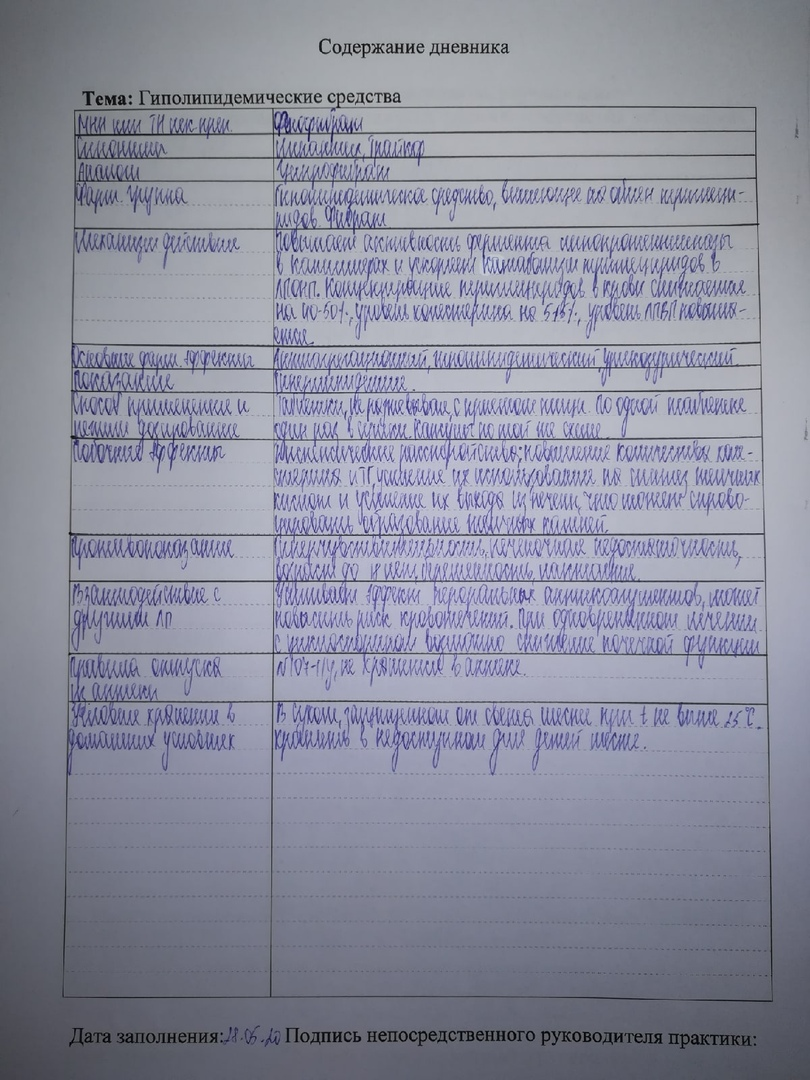 Содержание дневника
Тема: Гиполипидемические средства
МНН или ТН лек. преп.
Фенофибрат
Синонимы
Липантил, Трайкор
Аналоги
Ципрофибрат
Фарм. группа
Гиполипедемическое средство, влияющее на обмен триглице-
ридов. Фибрат
Механизм действия
Повышает активность фермента липопротеинлипазы
в капиллярах и ускоряет катаболизм триглицеридов в
ЛПОНП. Концентрация триглицеридов в крови снижается
на 40-50%, уровень холестерина на уровень ЛПВП повыша-
ется.
Основные фарм. эффекты
Антиагрегационный, гиполипидемический, урикозурический.
Показание
Гиперлипидемия.
Способ применения и
режим дозирования
Таблетки, не разжевывая, с приемом пищи. По одной таблетке
один раз в сутки. Капсулы по той же схеме.
Побочные эффекты
Диспепсические расстройства, повышение количества холе-
стерина и ТГ, усиление их использования на синтез желчных
кислот и усиление их выхода из печени, что может спрово-
цировать образование желчных камней.
Противопоказание
Гиперчувствительность, печеночная недостаточность,
возраст до лет, беременность,
Взаимодействие с
другими ЛП
Усиливает эффект пероральных антикоагулянтов, может
повысить риск кровотечений. При одновременном лечении
с циклоспорином возможно снижение почечной функции
Правила отпуска
из аптеки
№107-1/у, не хранение в аптеке.
Условие хранения в
домашних условиях
В сухом, защищенном от света месте при t не выше 25°С.
Хранить в недоступном для детей месте.
Дата заполнения: 28.05.20 Подпись непосредственного руководителя практики: